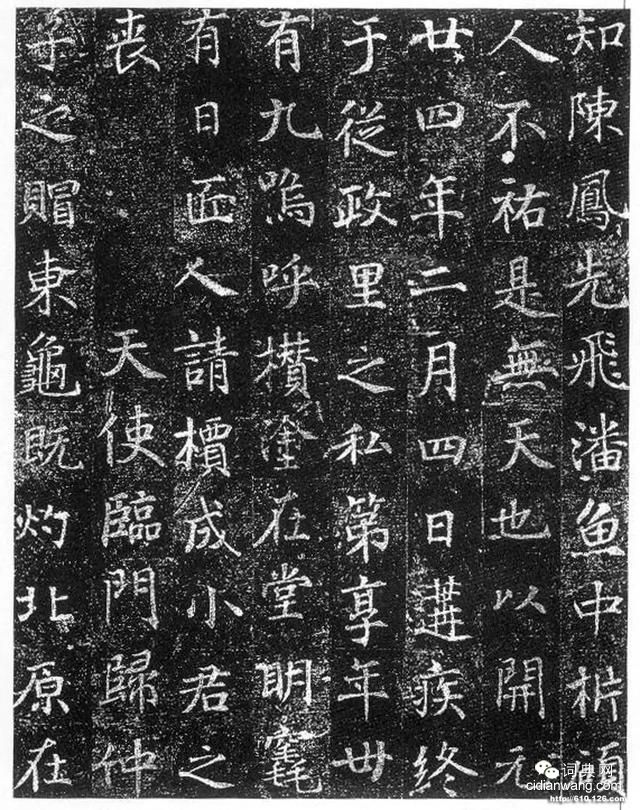 知陳鳳先飛潘魚中析
人不祐是無天也以開元
廿四年二月四日遘疾終
于從政里之私第享年卅
有九嗚呼欑塗在堂眀
有日匠人請檟成小君之
喪 天使臨門歸仲
子之賵東龜既灼北原在
词典网
cidianwang.com
http://610.126.com